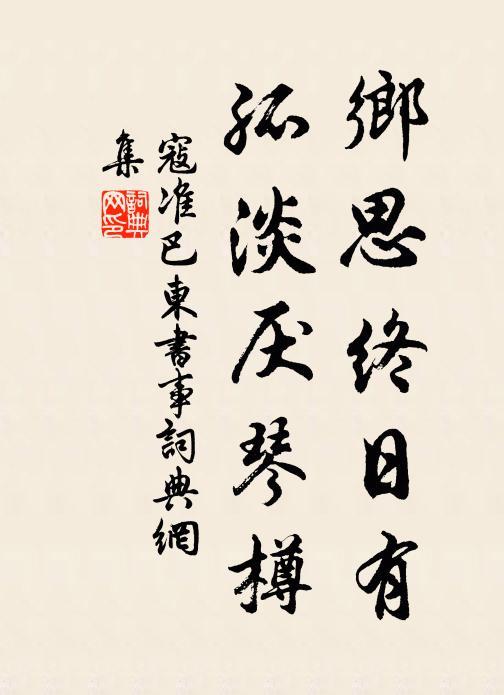 鄉思終日有
孤淡厌琴樽
寇准巴東書事詞典網
集
詞典网印